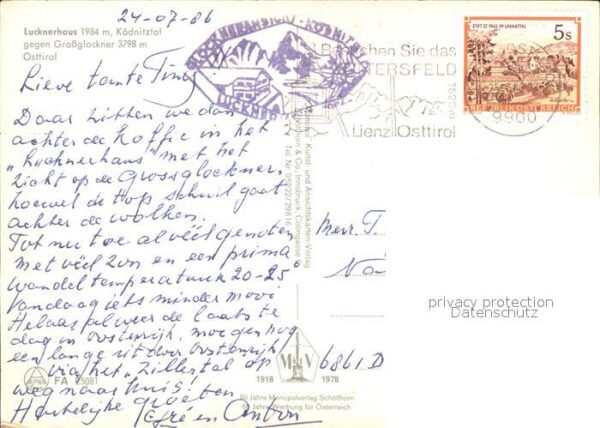 24-07-86
Lucknerhaus 1984 m, Ködnitztal
gegen Großglockner 3798 m
Osttirol
Lieve tante Tiny,
Daar zitten we dan
achter de koffie in het
"Lucknerhaus" met het
zicht op de Grossglockner,
hoewel de top schuil gaat
achter de wolken.
Tot nu toe al véél genoten
met véél zon en een prima
wandeltemperatuur 20-25°
Vandaag iets minder mooi
Helaas al weer de laatste
dag in Oostenrijk, morgen nog
een lange rit door Oostenrijk
via het "Zillertal op
weg naar huis!
Hartelijke groeten
en
GLOCKNER
LUCKNER
Besuchen Sie das
TERSFELD
1500m
Lienz Osttirol
STIFT ST. PAUL IM LAVANTTAL
5s
REPUBLIK ÖSTERREICH
9900
Kunst- und Ansichtskarten-Verlag
& Co., Innsbruck
Tel. Nr. 05222/29816
Mevr. T
Na
privacy protection
Datenschutz
M V
1918
1978
6861 D
FA 25081
60 Jahre Monopolverlag Schöllhorn
60 Jahre Werbung für Österreich